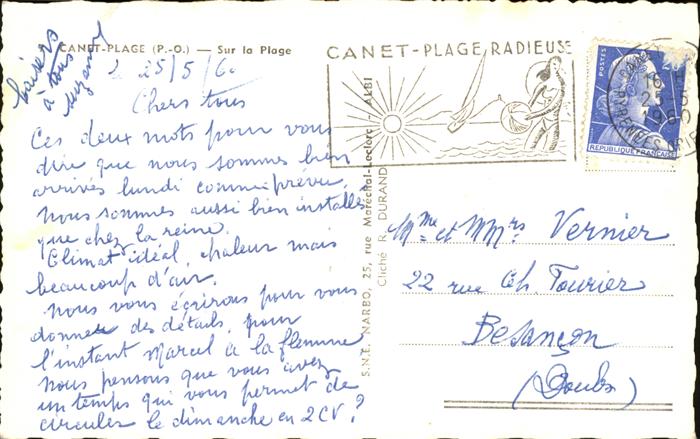 CANET-PLAGE (P.-O.) — Sur la Plage
Baisers
à tous
Suzanne
le 25/5/60
Chers tous
Ces deux mots pour vous
dire que nous sommes bien
arrivés lundi comme prévu.
Nous sommes aussi bien installés
que chez la reine.
Climat idéal, chaleur mais
beaucoup d'air.
Nous vous écrirons pour vous
donner des détails, pour
l'instant Marcel a la flemme
Nous pensons que vous avez
un temps qui vous permet de
circuler le dimanche en 2CV.?
S.N.E. NARBO, 25, rue Maréchal-Leclerc - ALBI
Cliché R. DURAND
CANET-PLAGE RADIEUSE
POSTES
REPUBLIQUE FRANÇAISE
16
25-5
1960
PYRENEES
Mme et MMrs Vernier
22 rue Ch Fourier
Besançon
(Doubs)